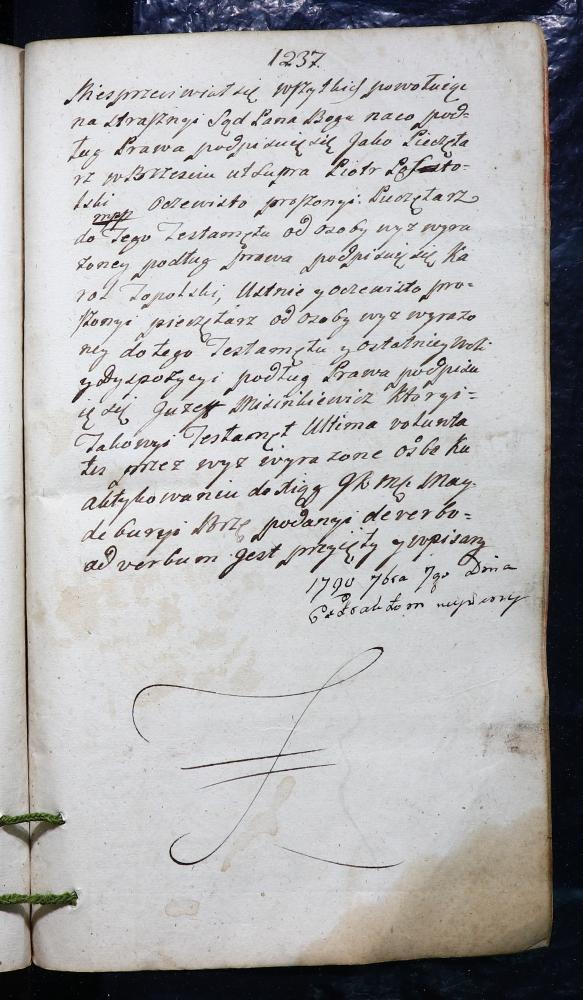 1237
Niesprzeciwiał się wszytkich powołuię
na straszny Sąd Pana Boga na co pod=
ług Prawa podpisuię się Jako Pieczęta
rz w Brześciu ut supra Piotr
lski mpp Oczewisto proszony Pieczętarz
do Tego Testamętu od osoby wyż wyra
żoney podług prawa podpisuię się Ka
rol Topolski, Ustnie y oczewisto pro=
szony pieczętarz od osoby wyż wyrażo
ney do tego Testamętu y ostatniey Woli
y Dyspozycyi podług Prawa podpisu
ię się Juzeff Misinkiewicz Który=
Takowy Testamęt Ultima volunta
tis przez wyż wyrażone osobe ku
aktykowaniu do xiąg
de burgo podany de verbo=
ad verbum jest przyięty y wpisany
1790 7bra 7go Dnia